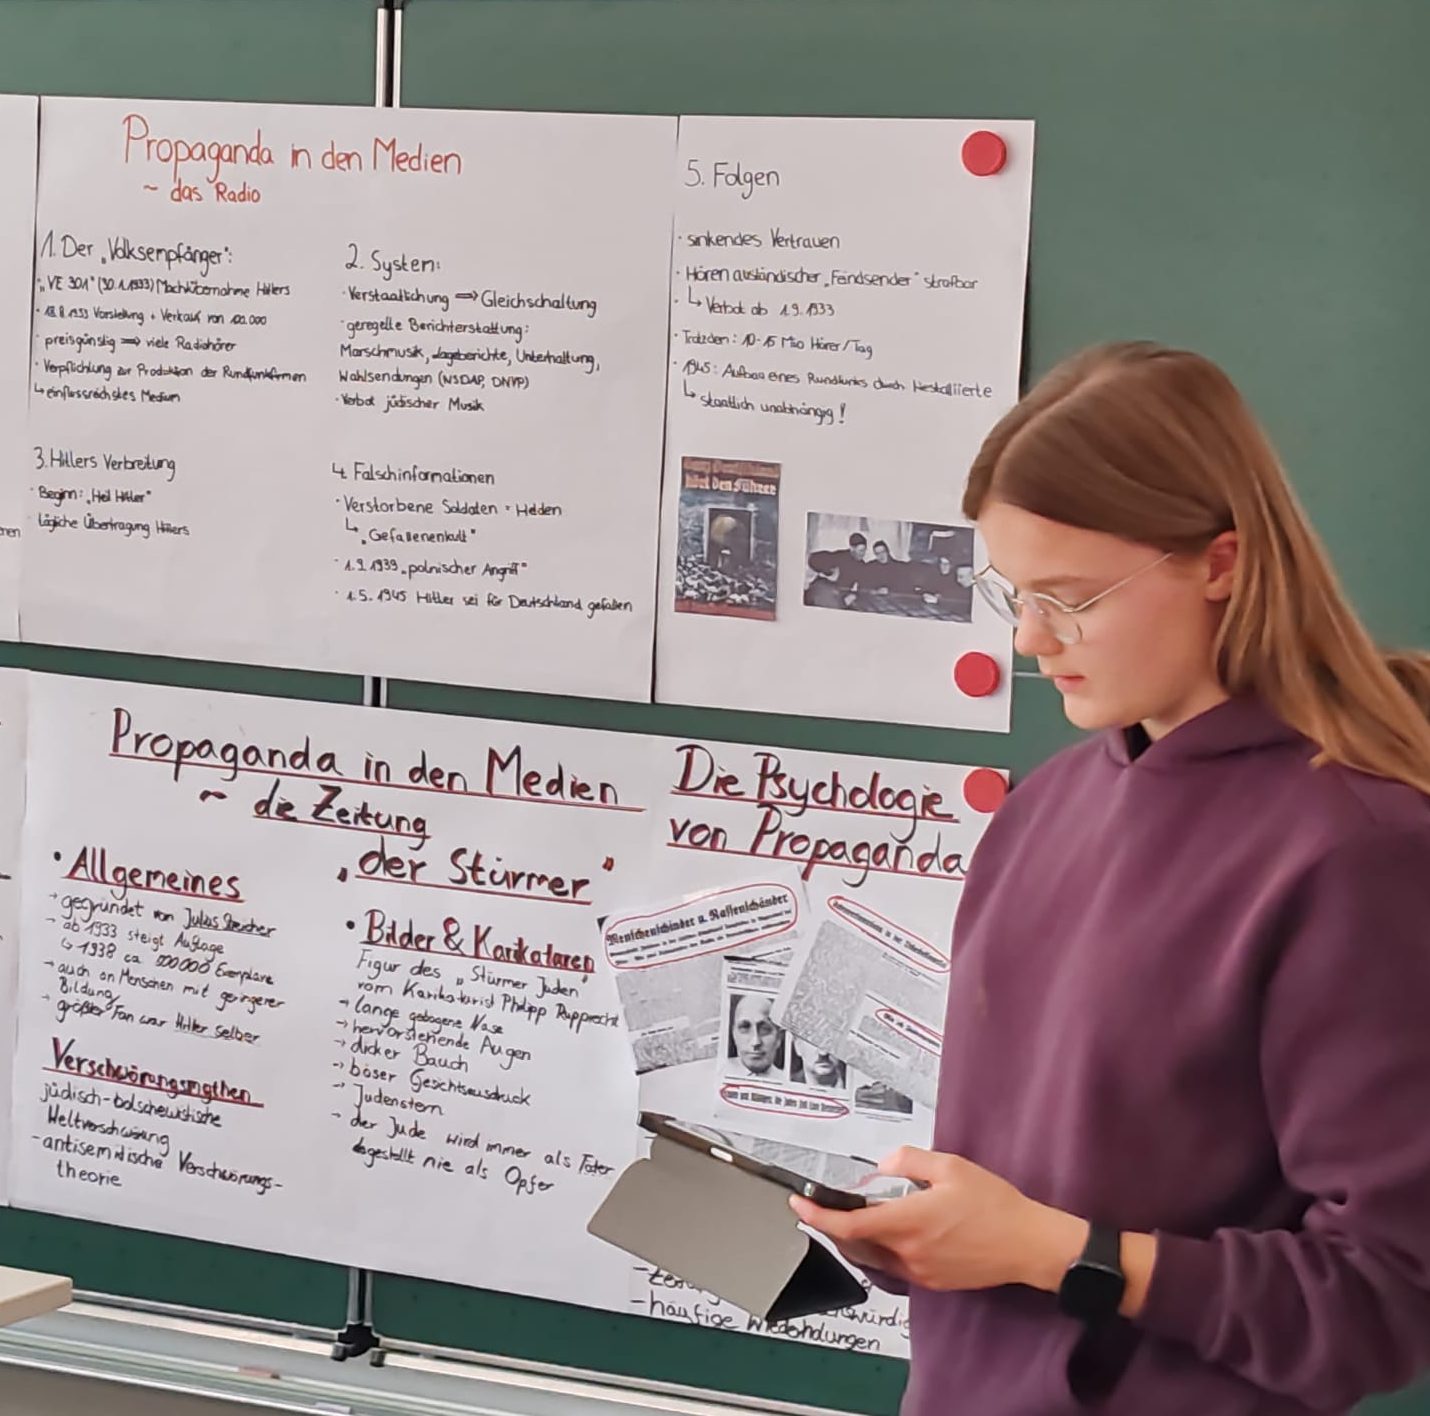 Propaganda in den Medien
~ das Radio
1. Der „Volksempfänger":
· „VE 301" (30.1.1933) Machtübernahme Hitlers
· 18.8.1933 Vorstellung + Verkauf von 100.000
· preisgünstig ⟹ viele Radiohörer
· Verpflichtung zur Produktion der Rundfunkfirmen
↳ einflussreichstes Medium
2. System:
· Verstaatlichung ⟹ Gleichschaltung
· geregelte Berichterstattung:
Marschmusik, Lageberichte, Unterhaltung,
Wahlsendungen (NSDAP, DNVP)
· Verbot jüdischer Musik
3. Hitlers Verbreitung
· Beginn: „Heil Hitler"
· tägliche Übertragung Hitlers
4. Falschinformationen
· Verstorbene Soldaten = Helden
↳ „Gefallenenkult"
· 1.9.1939 „polnischer Angriff"
· 1.5.1945 Hitler sei für Deutschland gefallen
5. Folgen
· sinkendes Vertrauen
· Hören ausländischer „Feindsender" strafbar
· ↳ Verbot ab 1.9.1933
· Trotzdem: 10-15 Mio Hörer/Tag
· 1945: Aufbau eines Rundfunks durch
↳ staatlich unabhängig!
hört den Führer
nen
Propaganda in den Medien
~ die Zeitung
„der Stürmer"
· Allgemeines
→ gegründet von Julius Streicher
→ ab 1933 steigt Auflage
↳ 1938 ca
Exemplare
→ auch an Menschen mit geringerer
Bildung
→ größter Fan war Hitler selber
Verschwörungsmythen
jüdisch-bolschewistische
Weltverschwörung
- antisemitische Verschwörungs-
theorie
· Bilder & Karikaturen
Figur des „Stürmer Juden"
vom Karikaturist Philipp Rupprecht
→ lange gebogene Nase
→ hervorstehende Augen
→ dicker Bauch
→ böser Gesichtsausdruck
→ Judenstern
→ der Jude wird immer als Täter
dagestellt nie als Opfer
Die Psychologie
von Propaganda
Menschenschinder u. Rassenschänder
- häufige Wiederholungen